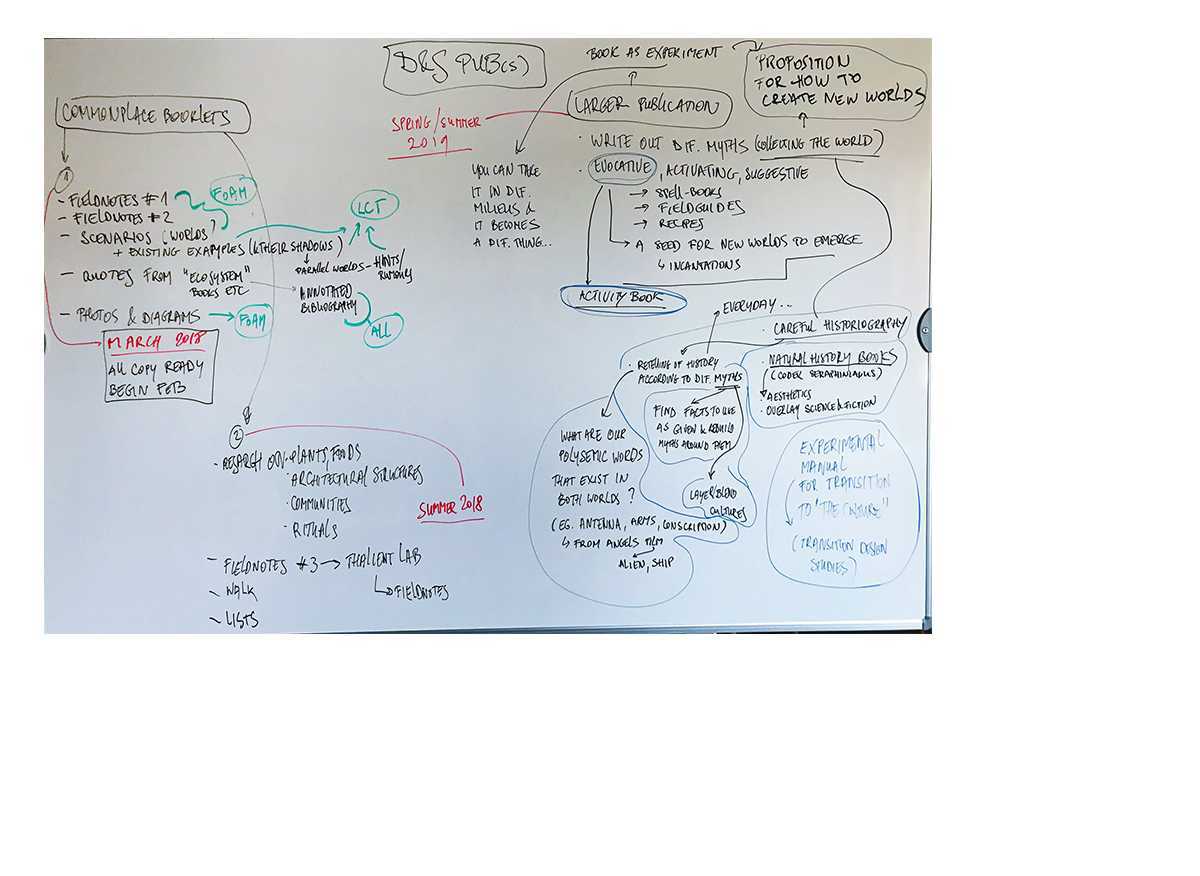 D&S PUB(S)
COMMONPLACE BOOKLETS
1
- FIELDNOTES #1
FOAM
- FIELDNOTES #2
- SCENARIOS (WORLDS)
+ EXISTING EXAMPLES (& THEIR SHADOWS)
LCT
PARALLEL WORLDS - HINTS/
RUMOURS
- QUOTES FROM "ECOSYSTEM"
BOOKS ETC
ANNOTATED
BIBLIOGRAPHY
ALL
- PHOTOS & DIAGRAMS
FOAM
MARCH 2018
ALL COPY READY
BEGIN FEB
2
- RESEARCH ON · PLANTS, FOODS
· ARCHITECTURAL STRUCTURES
· COMMUNITIES
· RITUALS
SUMMER 2018
- FIELDNOTES #3 → THALIENT LAB
FIELDNOTES
- WALK
- LISTS
BOOK AS EXPERIMENT
PROPOSITION
FOR HOW TO
CREATE NEW WORLDS
LARGER PUBLICATION
SPRING/SUMMER
2019
· WRITE OUT DIF. MYTHS (COLLECTING THE WORLD)
· EVOCATIVE, ACTIVATING, SUGGESTIVE
→ SPELL-BOOKS
→ FIELDGUIDES
→ RECIPES
→ A SEED FOR NEW WORLDS TO EMERGE
↳ INCANTATIONS
YOU CAN TAKE
IT IN DIF.
MILIEUS &
IT BECOMES
A DIF. THING..
ACTIVITY BOOK
EVERYDAY..
· CAREFUL HISTORIOGRAPHY
· RETELLING OF HISTORY
ACCORDING TO DIF. MYTHS
· NATURAL HISTORY BOOKS
(CODEX SERAPHINIANUS)
AESTHETICS
· OVERLAY SCIENCE & FICTION
FIND FACTS TO USE
AS GIVEN & REBUILD
MYTHS AROUND THEM
LAYER/BLEND
CULTURES
WHAT ARE OUR
POLYSEMIC WORDS
THAT EXIST IN
BOTH WORLDS?
(EG. ANTENNA, ARMS, CONSCRIPTION)
↳ FROM ANGELS FILM
ALIEN, SHIP
EXPERIMENTAL
MANUAL
FOR TRANSITION
TO "THE CULTURE"
(TRANSITION DESIGN
STUDIES)